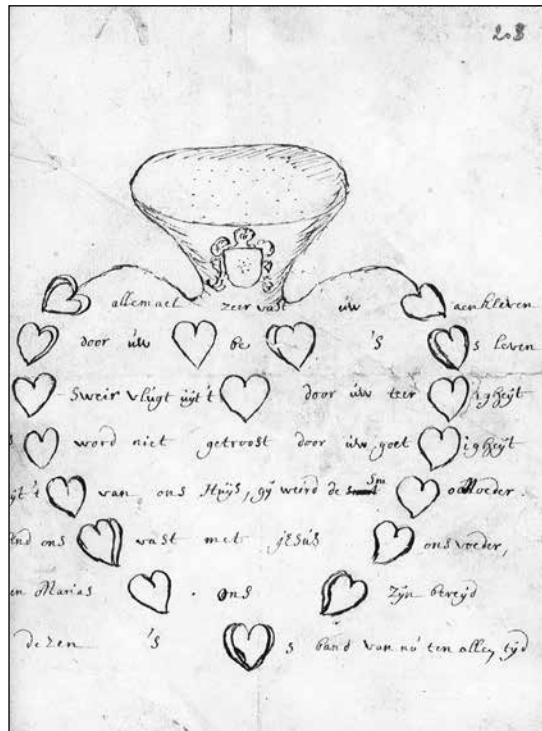 203
allemael zeer vast úw aenkleven
door úw be 's s leven
Sweir vlúgt úÿt 't door úw teer igheÿt
s word niet getroost door úw goet igheÿt
ÿt 't van ons Húÿs, gÿ weird de Sm oedoeder.
end ons vast met jesús ons voeder,
en Marias ons zÿn bereÿd
dezen 's s band van nú ten allen tÿd